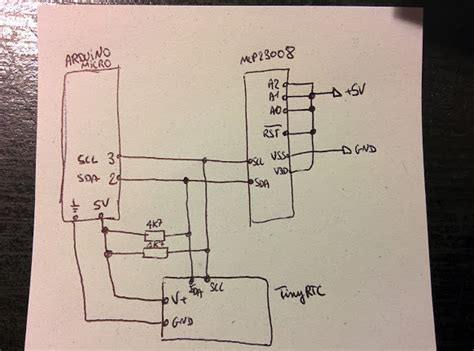 ARDUINO
MICRO
MCP23008
A2
A1
A0
+5V
RST
SCL 3
SDA 2
SCL
SDA
VSS
VDD
GND
5V
4K7
4K7
SDA
SCL
V+
GND
TinyRTC